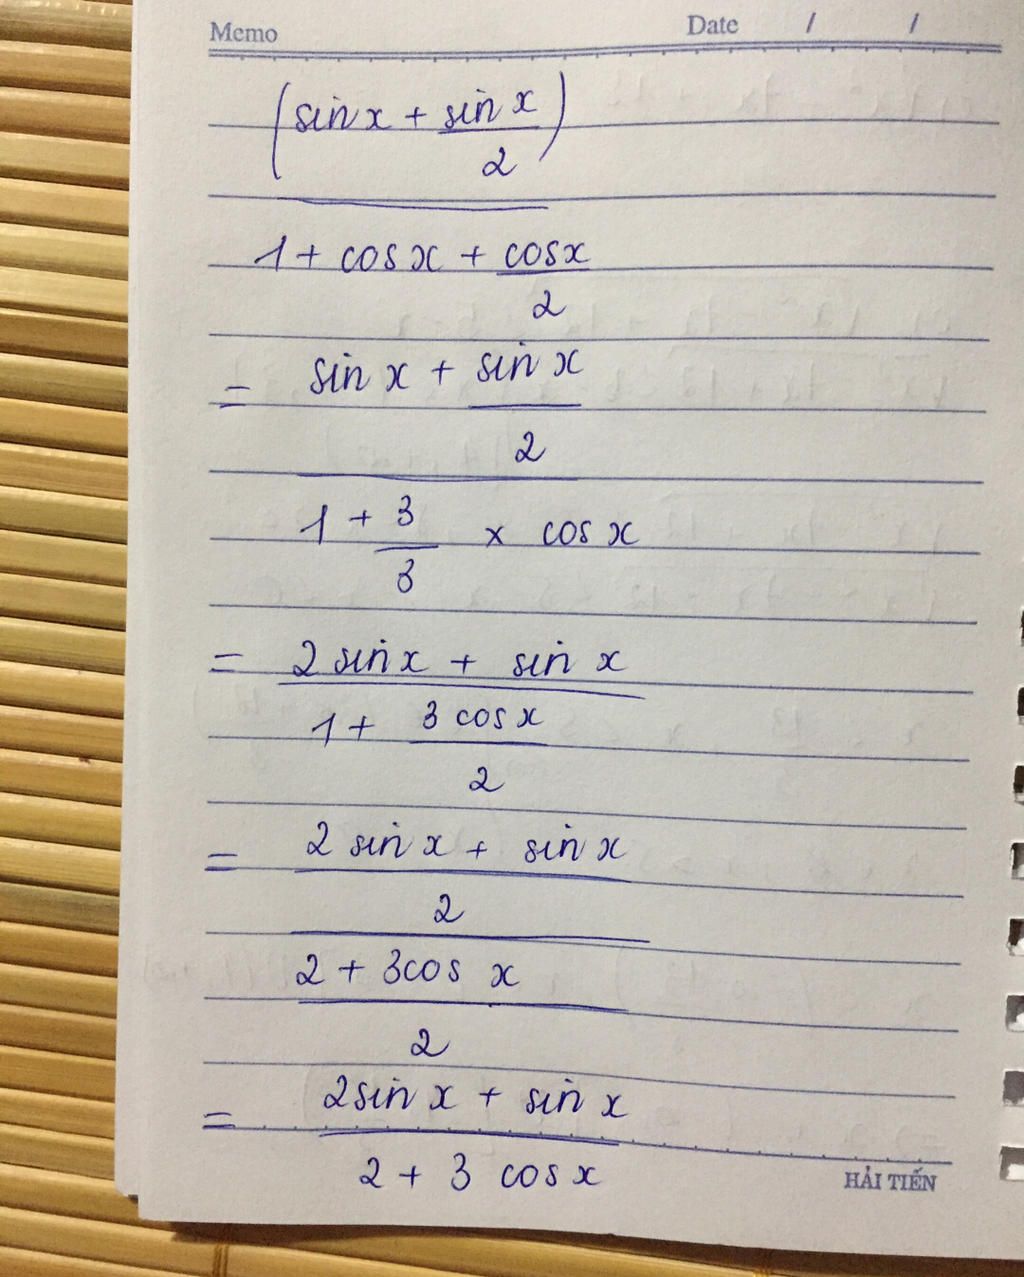 Memo Date / /
(sin x + sin x
2)
1 + cos x + cos x
2
= sin x + sin x
2
1 + 3 × cos x
3
= 2 sin x + sin x
1 + 3 cos x
2
= 2 sin x + sin x
2
2 + 3 cos x
2
= 2 sin x + sin x
2 + 3 cos x
HẢI TIẾN